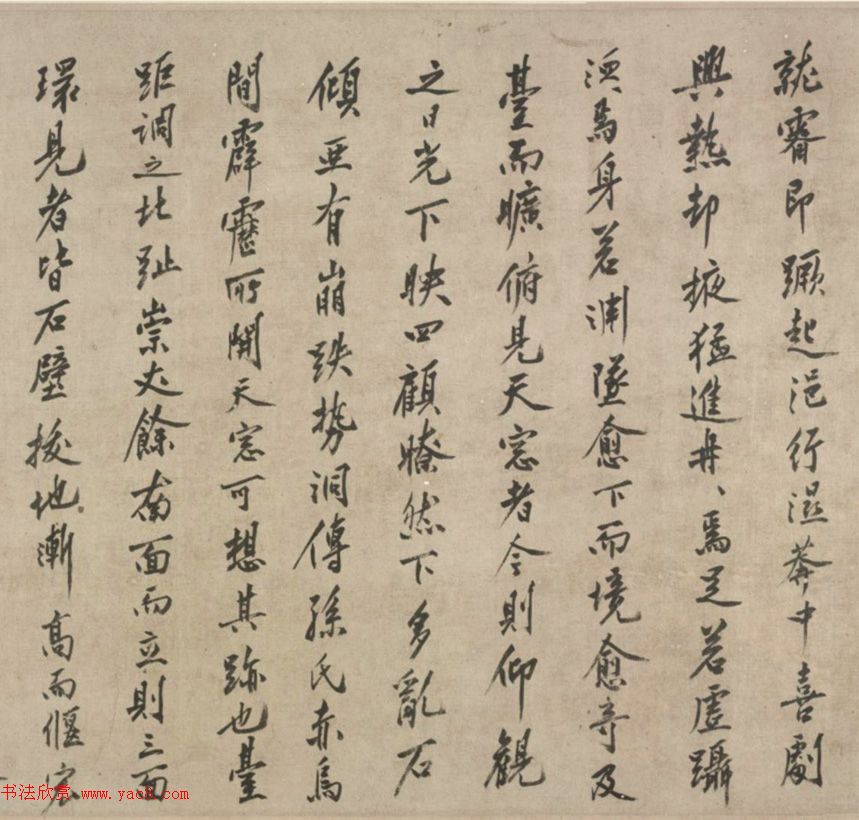 就睿即蹶起浥行濕莽中喜劇
興熱却掖猛進冉丶焉足若虛躡
湏焉身若淵墜愈下而境愈奇及
臺而曠俯見天窓者今則仰觀
之日光下映四顧瞭然下多亂石
傾亞有崩跌勢洞傳孫氏赤烏
間霹靂所開天窓可想其跡也臺
距調之北趾崇丈餘南面而立則三面
環見者皆石壁拔地漸高而偃宏
书法欣赏 www.yac8.com